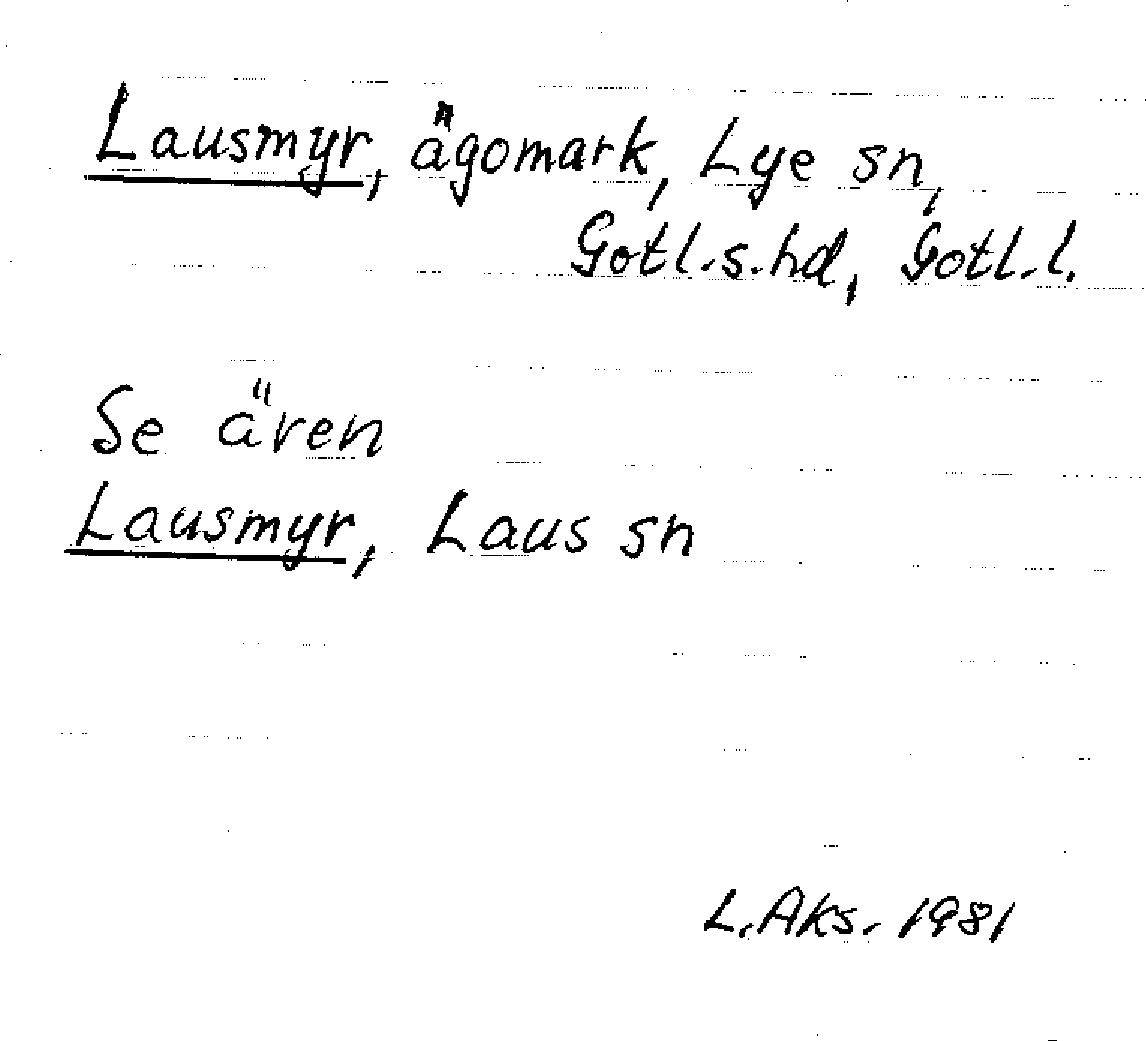 Lausmyr, ägomark, Lye sn,
Gotl.s.hd, Gotl.l.
Se även
Lausmyr, Laus sn
L.Aks. 1981